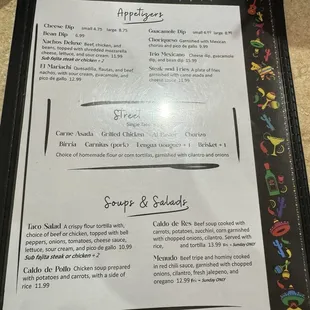 Appetizers
Cheese Dip small 4.75 large 8.75
Bean Dip 6.99
Nachos Deluxe Beef, chicken, and
beans, topped with shredded mozzarella
cheese, lettuce, and sour cream 11.99
Sub fajita steak or chicken + 2
El Mariachi Quesadilla, flautas, and beef
nachos, with sour cream, guacamole,
and pico de gallo 12.99
Guacamole Dip small 4.99 large 9.99
Choriqueso Garnished with Mexican
chorizo and pico de gallo 9.99
Trio Mexicano Cheese dip, guacamole
dip, and bean dip 13.99
Steak and Fries A plate of fries
garnished with carne asada and
cheese sauce 13.99
Street
Carne Asada Grilled Chicken Chorizo
Birria Carnitas (pork) Lengua + 1 Brisket + 1
Choice of homemade flour or corn tortillas, garnished with cilantro and onions
Soups & Salads
Taco Salad A crispy flour tortilla with,
choice of beef or chicken, topped with bell
peppers, onions, tomatoes, cheese sauce,
lettuce, sour cream, and pico de gallo 10.99
Sub fajita steak or chicken + 2
Caldo de Pollo Chicken soup prepared
with potatoes and carrots, with a side of
rice 11.99
Caldo de Res Beef soup cooked with
carrots, potatoes, zucchini, corn and
garnished with chopped onions, cilantro. Served with
rice, and tortilla 13.99 Fri - Sunday ONLY
Menudo Beef tripe and hominy cooked
in red chili sauce, garnished with chopped
onions, cilantro, fresh jalapeno, and
oregano 12.99 Fri - Sunday ONLY